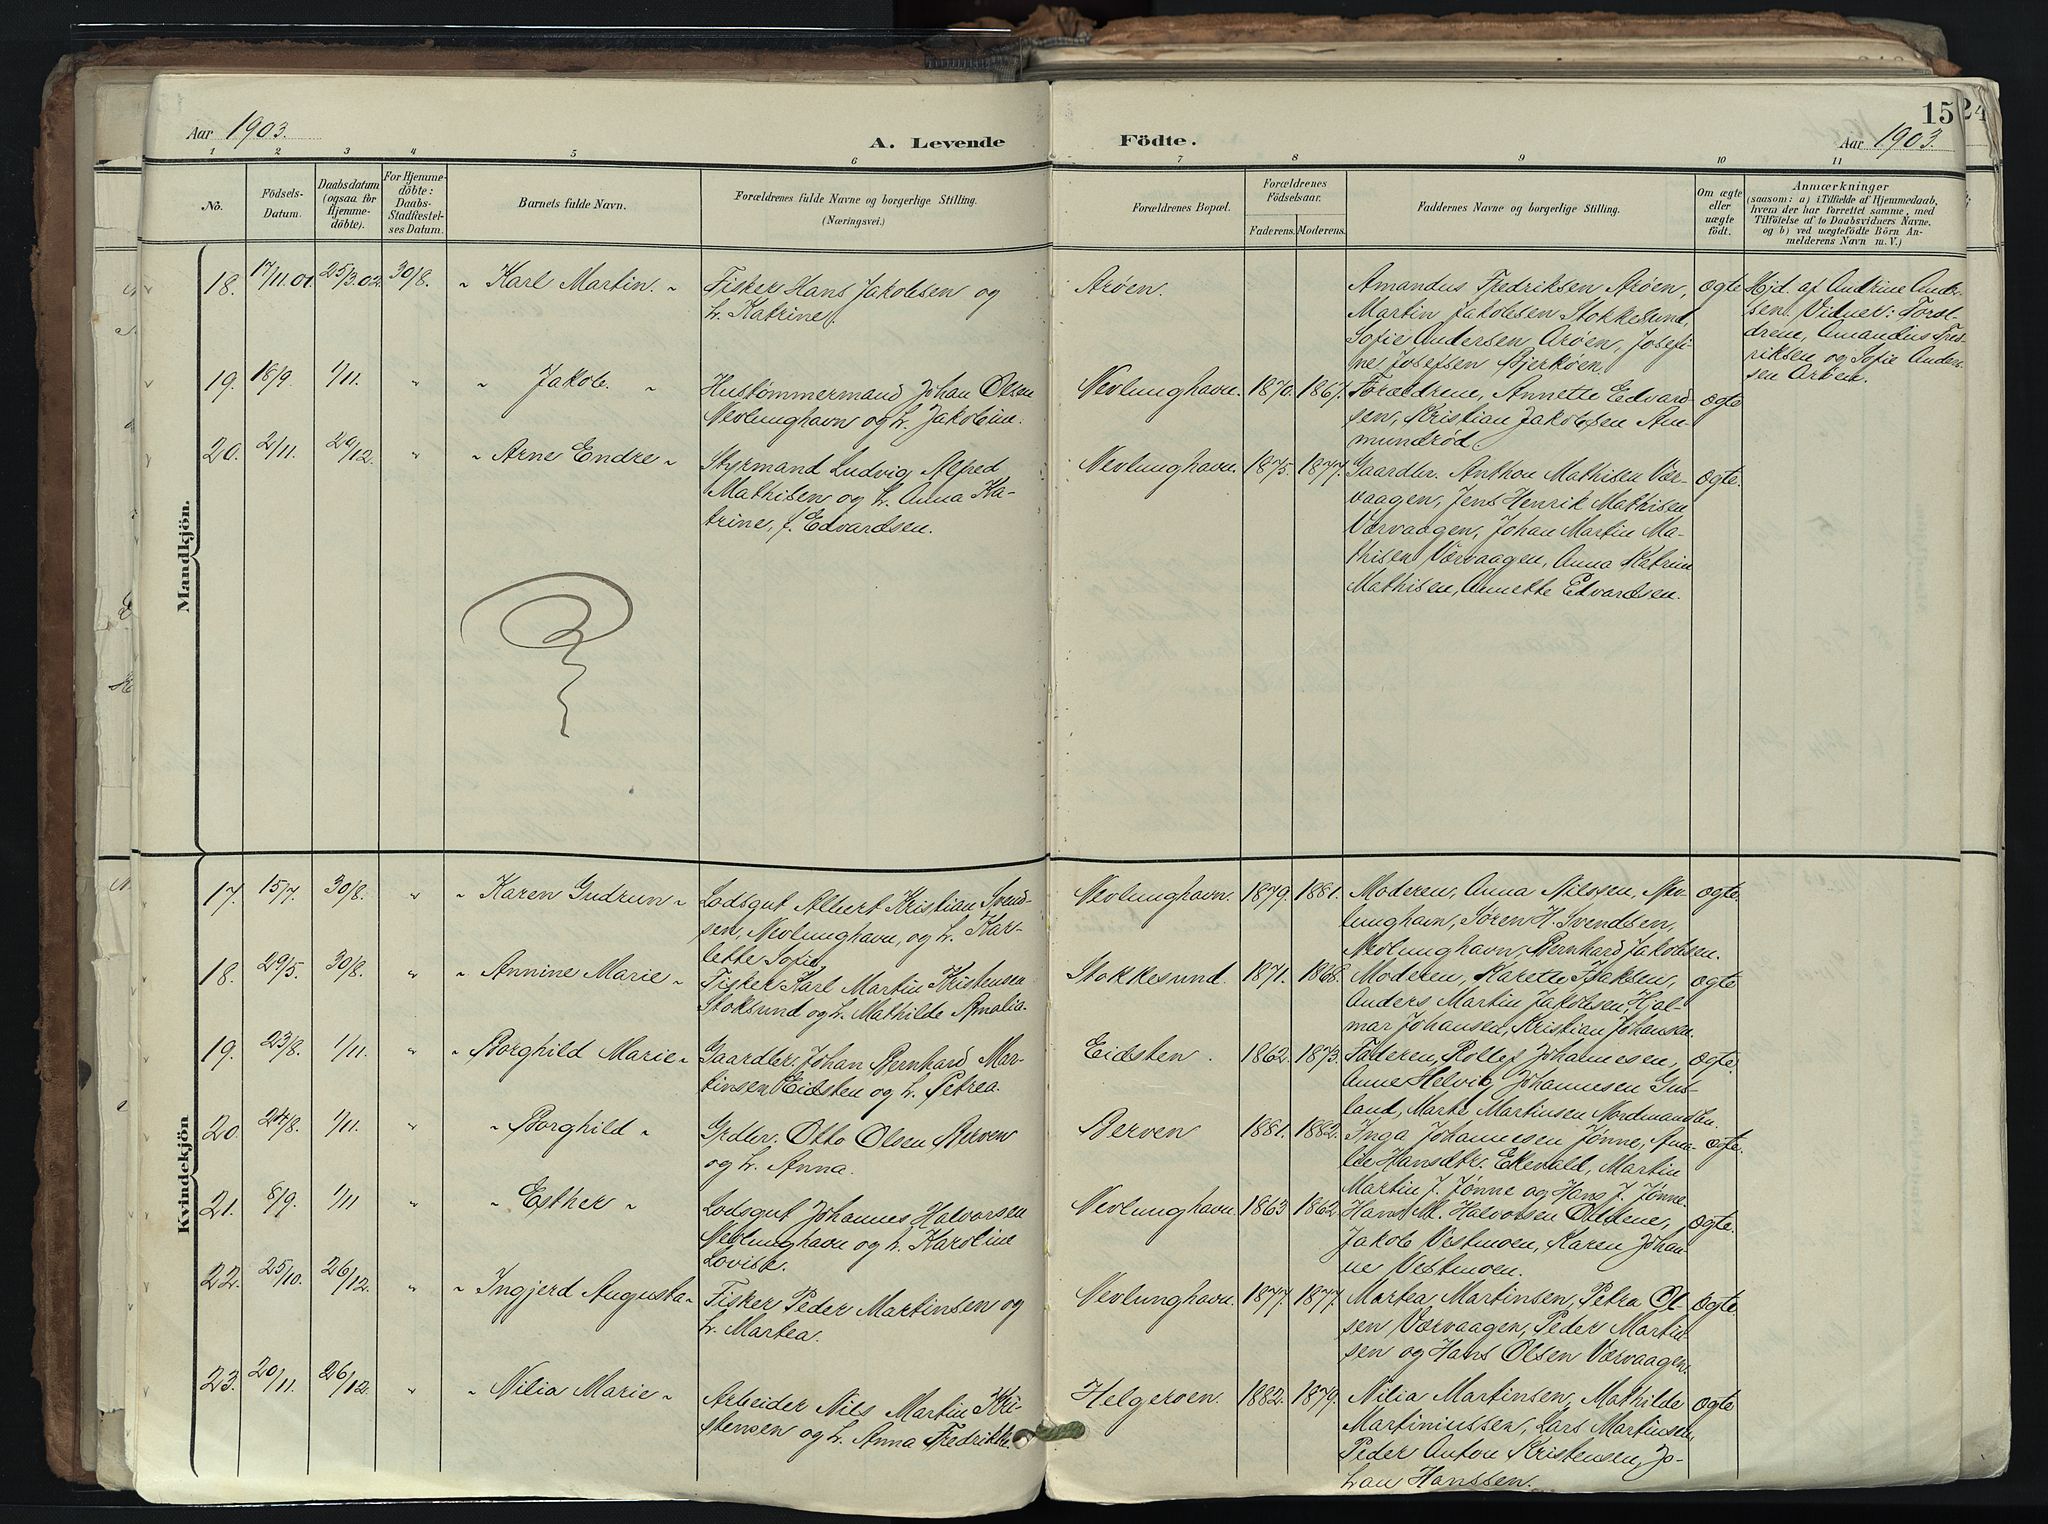 Aar 1903.
A. Levende
Födte.
15
24
Aar 1903.
1 2 3 4 5 6 7 8 9 10 11
No.
Födsels-
Datum.
Daabsdatum
(ogsaa for
Hjemme-
döbte).
For Hjemme-
döbte:
Daabs-
Stadfæstel-
ses Datum.
Barnets fulde Navn.
Forældrenes fulde Navne og borgerlige Stilling.
(Næringsvei.)
Forældrenes Bopæl.
Forældrenes
Födselsaar.
Faderens. Moderens.
Faddernes Navne og borgerlige Stilling.
Om ægte
eller
uægte
födt.
Anmærkninger
(saasom: a) i Tilfælde af Hjemmedaab,
hvem der har forrettet samme, med
Tilföielse af to Daabsvidners Navne,
og b) ved uægtefödte Börn An-
melderens Navn m. V.)
Mandkjön.
18. 17/11.01. 25/3.02. 30/8. " Karl Martin. "
Fisker Hans Jakobsen og
h. Katrine.
Arøen.
Amandus Fredriksen Arøen,
Martin Jakobsen Stokkesund,
Sofie Andersen Arøen, Josefi-
ne Josefsen Bjerkøen.
ægte
Hjd. af Andrine Ander-
sen. Vidner: Foræl-
drene, Amandus Fred-
riksen og Sofie Ander-
sen Arøen.
19. 18/9. 1/11. " " Jakob. "
Hustømmermand Johan Olsen
Nevlunghavn og h. Jakobine.
Nevlunghavn. 1870. 1867.
Forældrene, Annette Edvard-
sen, Kristian Jakobsen Am-
mundrød.
ægte
20. 2/11. 29/12. " " Arne Endre "
Styrmand Ludvig Alfred
Mathisen og h. Anna Ka-
trine, f. Edvardsen.
Nevlunghavn. 1875. 1877.
Gaardbr. Anthon Mathisen Vær-
vaagen, Jens Henrik Mathisen
Værvaagen, Johan Martin Ma-
thisen Værvaagen, Anna Katrine
Mathisen, Annette Edvardsen.
ægte.
Kvindekjön
17. 15/7 30/8. " " Karen Gudrun "
Lodsgut Albert Kristian Svend-
sen, Nevlunghavn, og h. Kar-
lette Sofie
Nevlunghavn. 1879. 1881.
Moderen, Anna Nilssen, Nev-
lunghavn, Søren H. Svendsen,
Nevlunghavn, Bernhard Jakobsen.
ægte.
18. 29/5. 30/8. " " Annine Marie "
Fisker Karl Martin Kristensen
Stoksund og h. Mathilde Amalia.
Stokkesund. 1871. 1868.
Moderen, Karette Isaksen,
Anders Martin Jakobsen, Hjal-
mar Johansen, Kristian Johansen.
ægte
19. 23/8. 1/11. " " Borghild Marie "
Gaardbr. Johan Bernhard Mar-
tinsen Eidsten og h. Petrea.
Eidsten. 1862. 1873.
Faderen, Rollef Johannesen,
Anne Helvig Johannesen Gus-
land, Marte Martinsen Nordmanden.
ægte.
20. 24/8. 1/11. " " Borghild "
Grdbr. Otto Olsen Berven
og h. Anna.
Berven 1881. 1882.
Inga Johannesen Jønne, Ama-
lie Hansdtr. Ekevald, Martin
Martin J. Jønne og Hans J. Jønne.
ægte.
21. 8/9. 1/11 " " Esther "
Lodsgut Johannes Halvorsen
Nevlunghavn og h. Karoline
Lovise.
Nevlunghavn. 1863 1862
Hans M. Halvorsen Oddene,
Jakob Vestmoen, Karen Johan-
ne Vestmoen.
ægte.
22. 25/10. 26/12. " " Ingjerd Augusta "
Fisker Peder Martinsen og
h. Martea.
Nevlunghavn. 1877. 1877.
Martea Martinsen, Petra Ol-
sen Værvaagen, Peder Martin-
sen og Hans Olsen Værvaagen.
ægte.
23. 20/11. 26/12. " " Nilia Marie "
Arbeider Nils Martin Kri-
stensen og h. Anna Fredrikke.
Helgeroen. 1882. 1879.
Nilia Martinsen, Mathilde
Martiniussen, Lars Martinsen,
Peder Anton Kristensen, Jo-
han Hanssen.
ægte